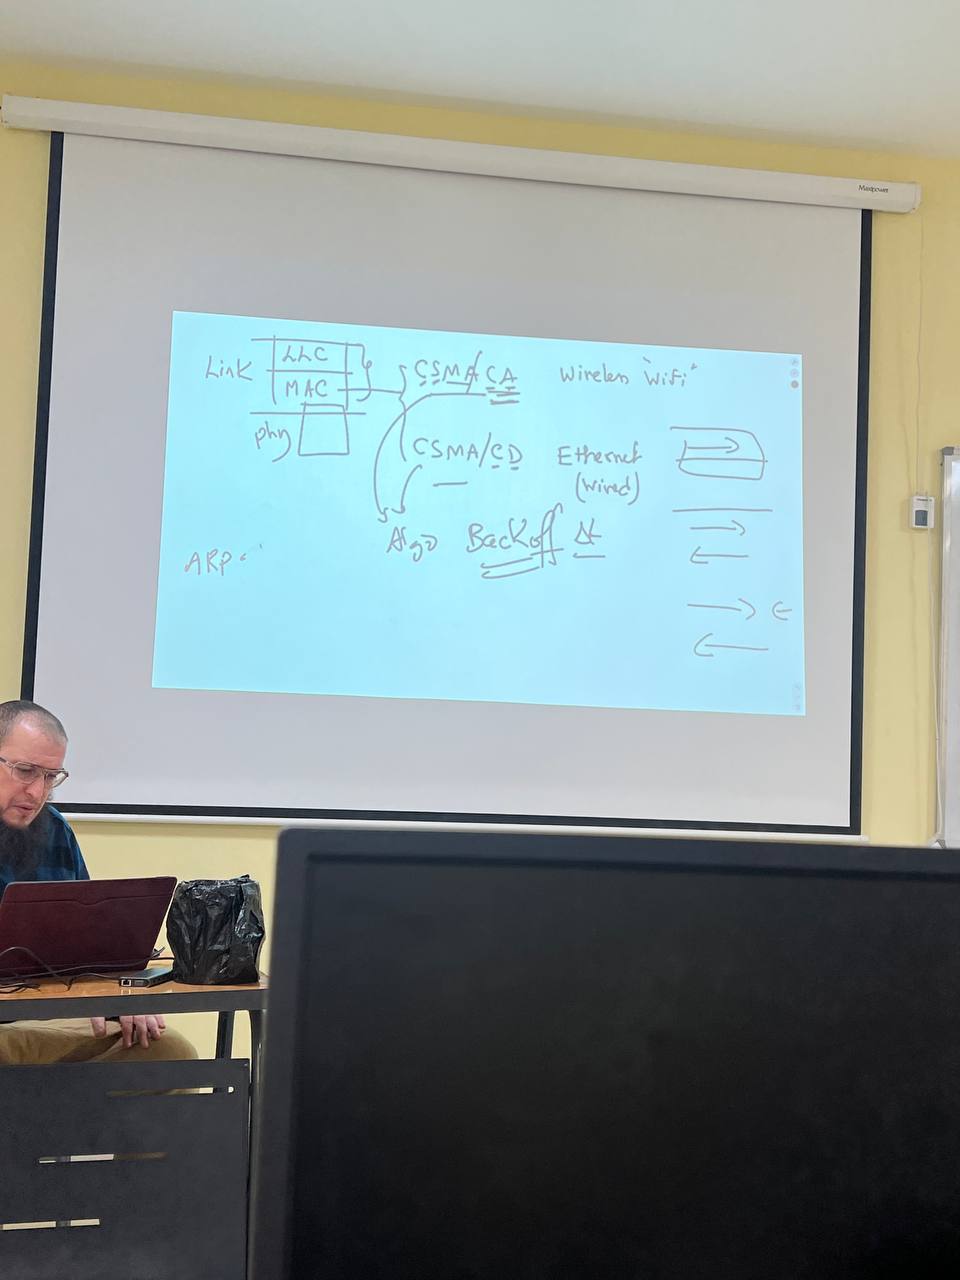 Maxpower
Link LLC
MAC
phy
CSMA/CA Wireless "WiFi"
CSMA/CD Ethernet
(Wired)
Algo Backoff Δt
ARP